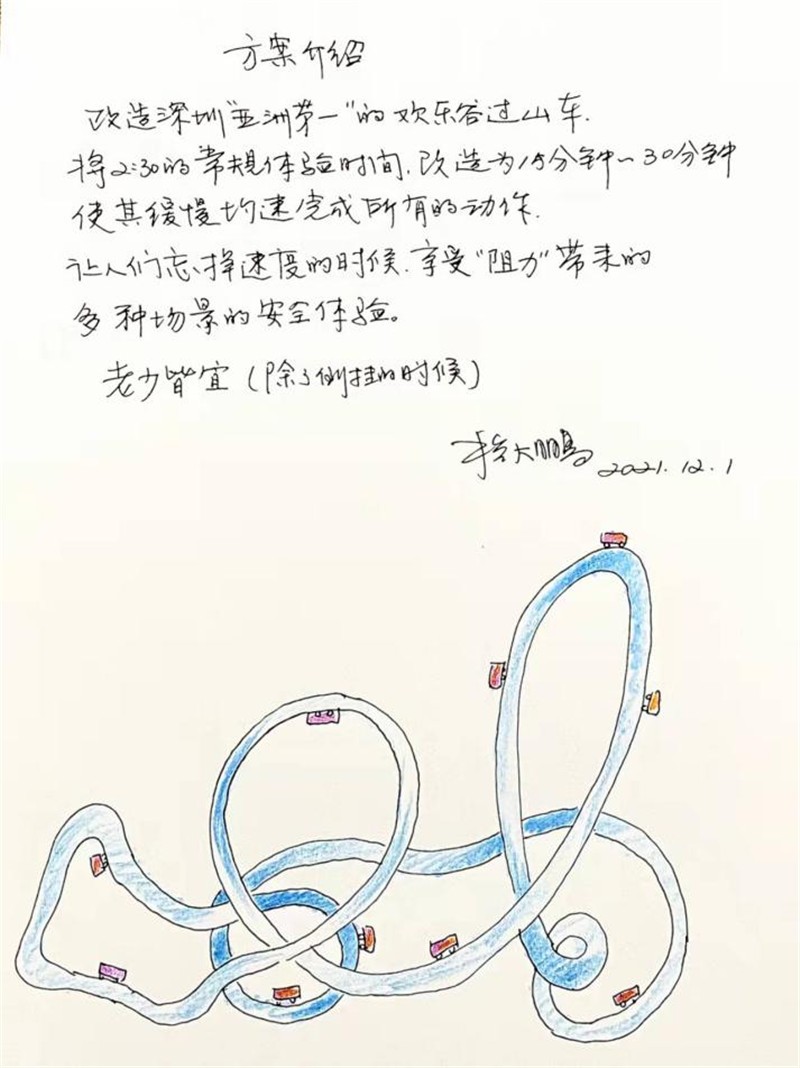 方案介绍
改造深圳“亚洲第一”的欢乐谷过山车.
将2:30的常规体验时间,改造为15分钟~30分钟
使其缓慢均速完成所有的动作.
让人们忘掉速度的时候.享受“阻力”带来的
多种场景的安全体验。
老少皆宜(除了倒挂的时候)
大鹏 2021.12.1